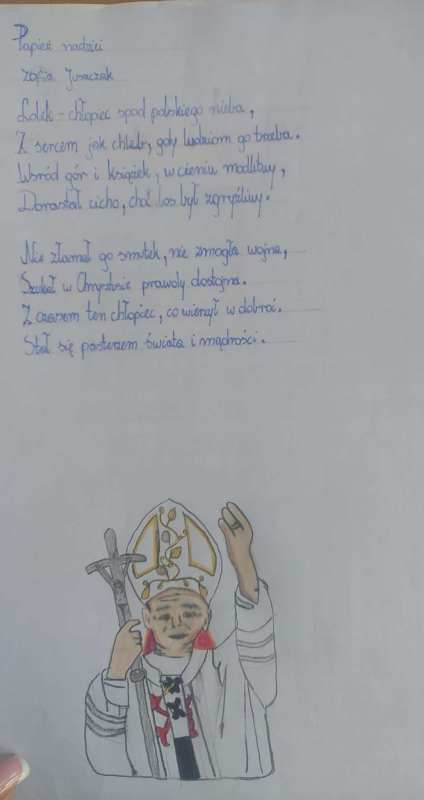 Papież nadziei
Zofia Juszczak
Lolek - chłopiec spod polskiego nieba,
Z sercem jak chleb, gdy ludziom go trzeba.
Wśród gór i książek, w cieniu modlitwy,
Dorastał cicho, choć los był zgryźliwy.
Nie złamał go smutek, nie zmogła wojna,
Szukał w Chrystusie prawdy dostojna.
Z czasem ten chłopiec, co wierzył w dobroć.
Stał się pasterzem świata i mądrości.